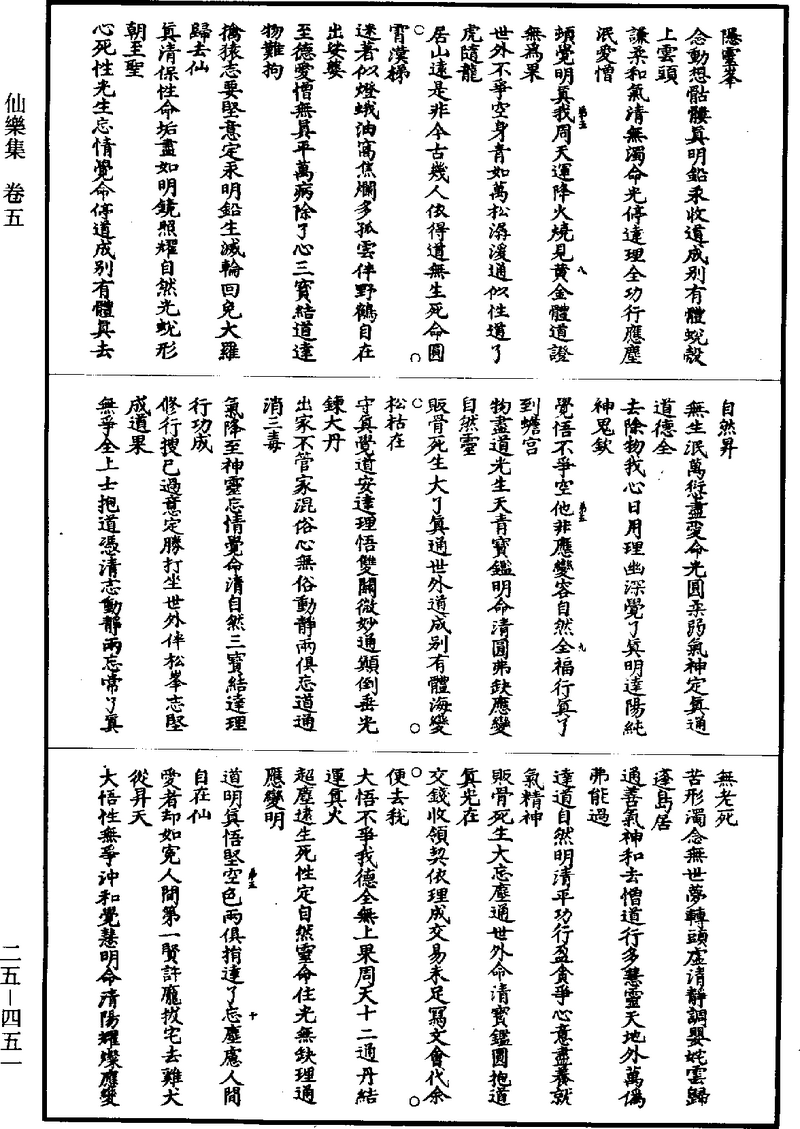 仙樂集　卷五
二五—四五一
隱雲峯
念動想骷髏真明鉛汞收道成别有體蛻殼
上雲頭
謙柔和氣清無濁命光停達理全功行應塵
泯愛憎
頻覺明真我周天運降火燒見黃金體道證
第五　八
無爲果
世外不爭空身青如萬松潺湲通似性道了
虎隨龍
居山遠是非今古幾人依得道無生死命圓
霄漢梯
迷著似燈蛾油窩焦爛多孤雲伴野鶴自在
出娑婆
至德愛憎無異平萬病除了心三寶結道達
物難拘
擒猿志要堅意定汞明鉛生滅輪回免大羅
歸去仙
真清保性命垢盡如明鏡照耀自然光蛻形
朝至聖
心死性光生忘情覺命停道成别有體真去
自然昇
無生泯萬愆盡愛命光圓柔弱氣神定真通
道德全
去除物我心日用理幽深覺了真明達陽純
神鬼欽
覺悟不爭空他非應變容自然全福行真了
第五　九
到蟾宮
物盡道光生天青寶鑑明命清圓弗缺應變
自然靈
販骨死生大了真通世外道成别有體海變
松枯在
守真覺道安達理悟雙關微妙通顛倒垂光
鍊大丹
出家不管家混俗心無俗動靜兩俱忘道通
消三毒
氣降至神靈忘情覺命清自然三寶結達理
行功成
修行搜己過意定勝打坐世外伴松峯志堅
成道果
無爭全上士抱道憑清志動靜兩忘常了真
無老死
苦形濁念無世夢轉頭虛清靜調嬰姹雲歸
蓬島居
通善氣神和去憎道行多慧靈天地外萬僞
弗能過
達道自然明清平功行盈貪爭心意盡養就
氣精神
販骨死生大忘塵通世外命清寶鑑圓抱道
真光在
交錢收領契依理成交易來足寫文會代余
便去我
大悟不爭我德全無上果周天十二通丹結
運真火
超塵遠生死性定自然靈命住光無缺理通
應變明
道明真悟堅空色兩俱捐達了忘塵慮人間
第五　十
自在仙
愛者却如寃人間第一賢許龎拔宅去雞犬
從昇天
大悟性無爭沖和覺慧明命清陽耀燦應變